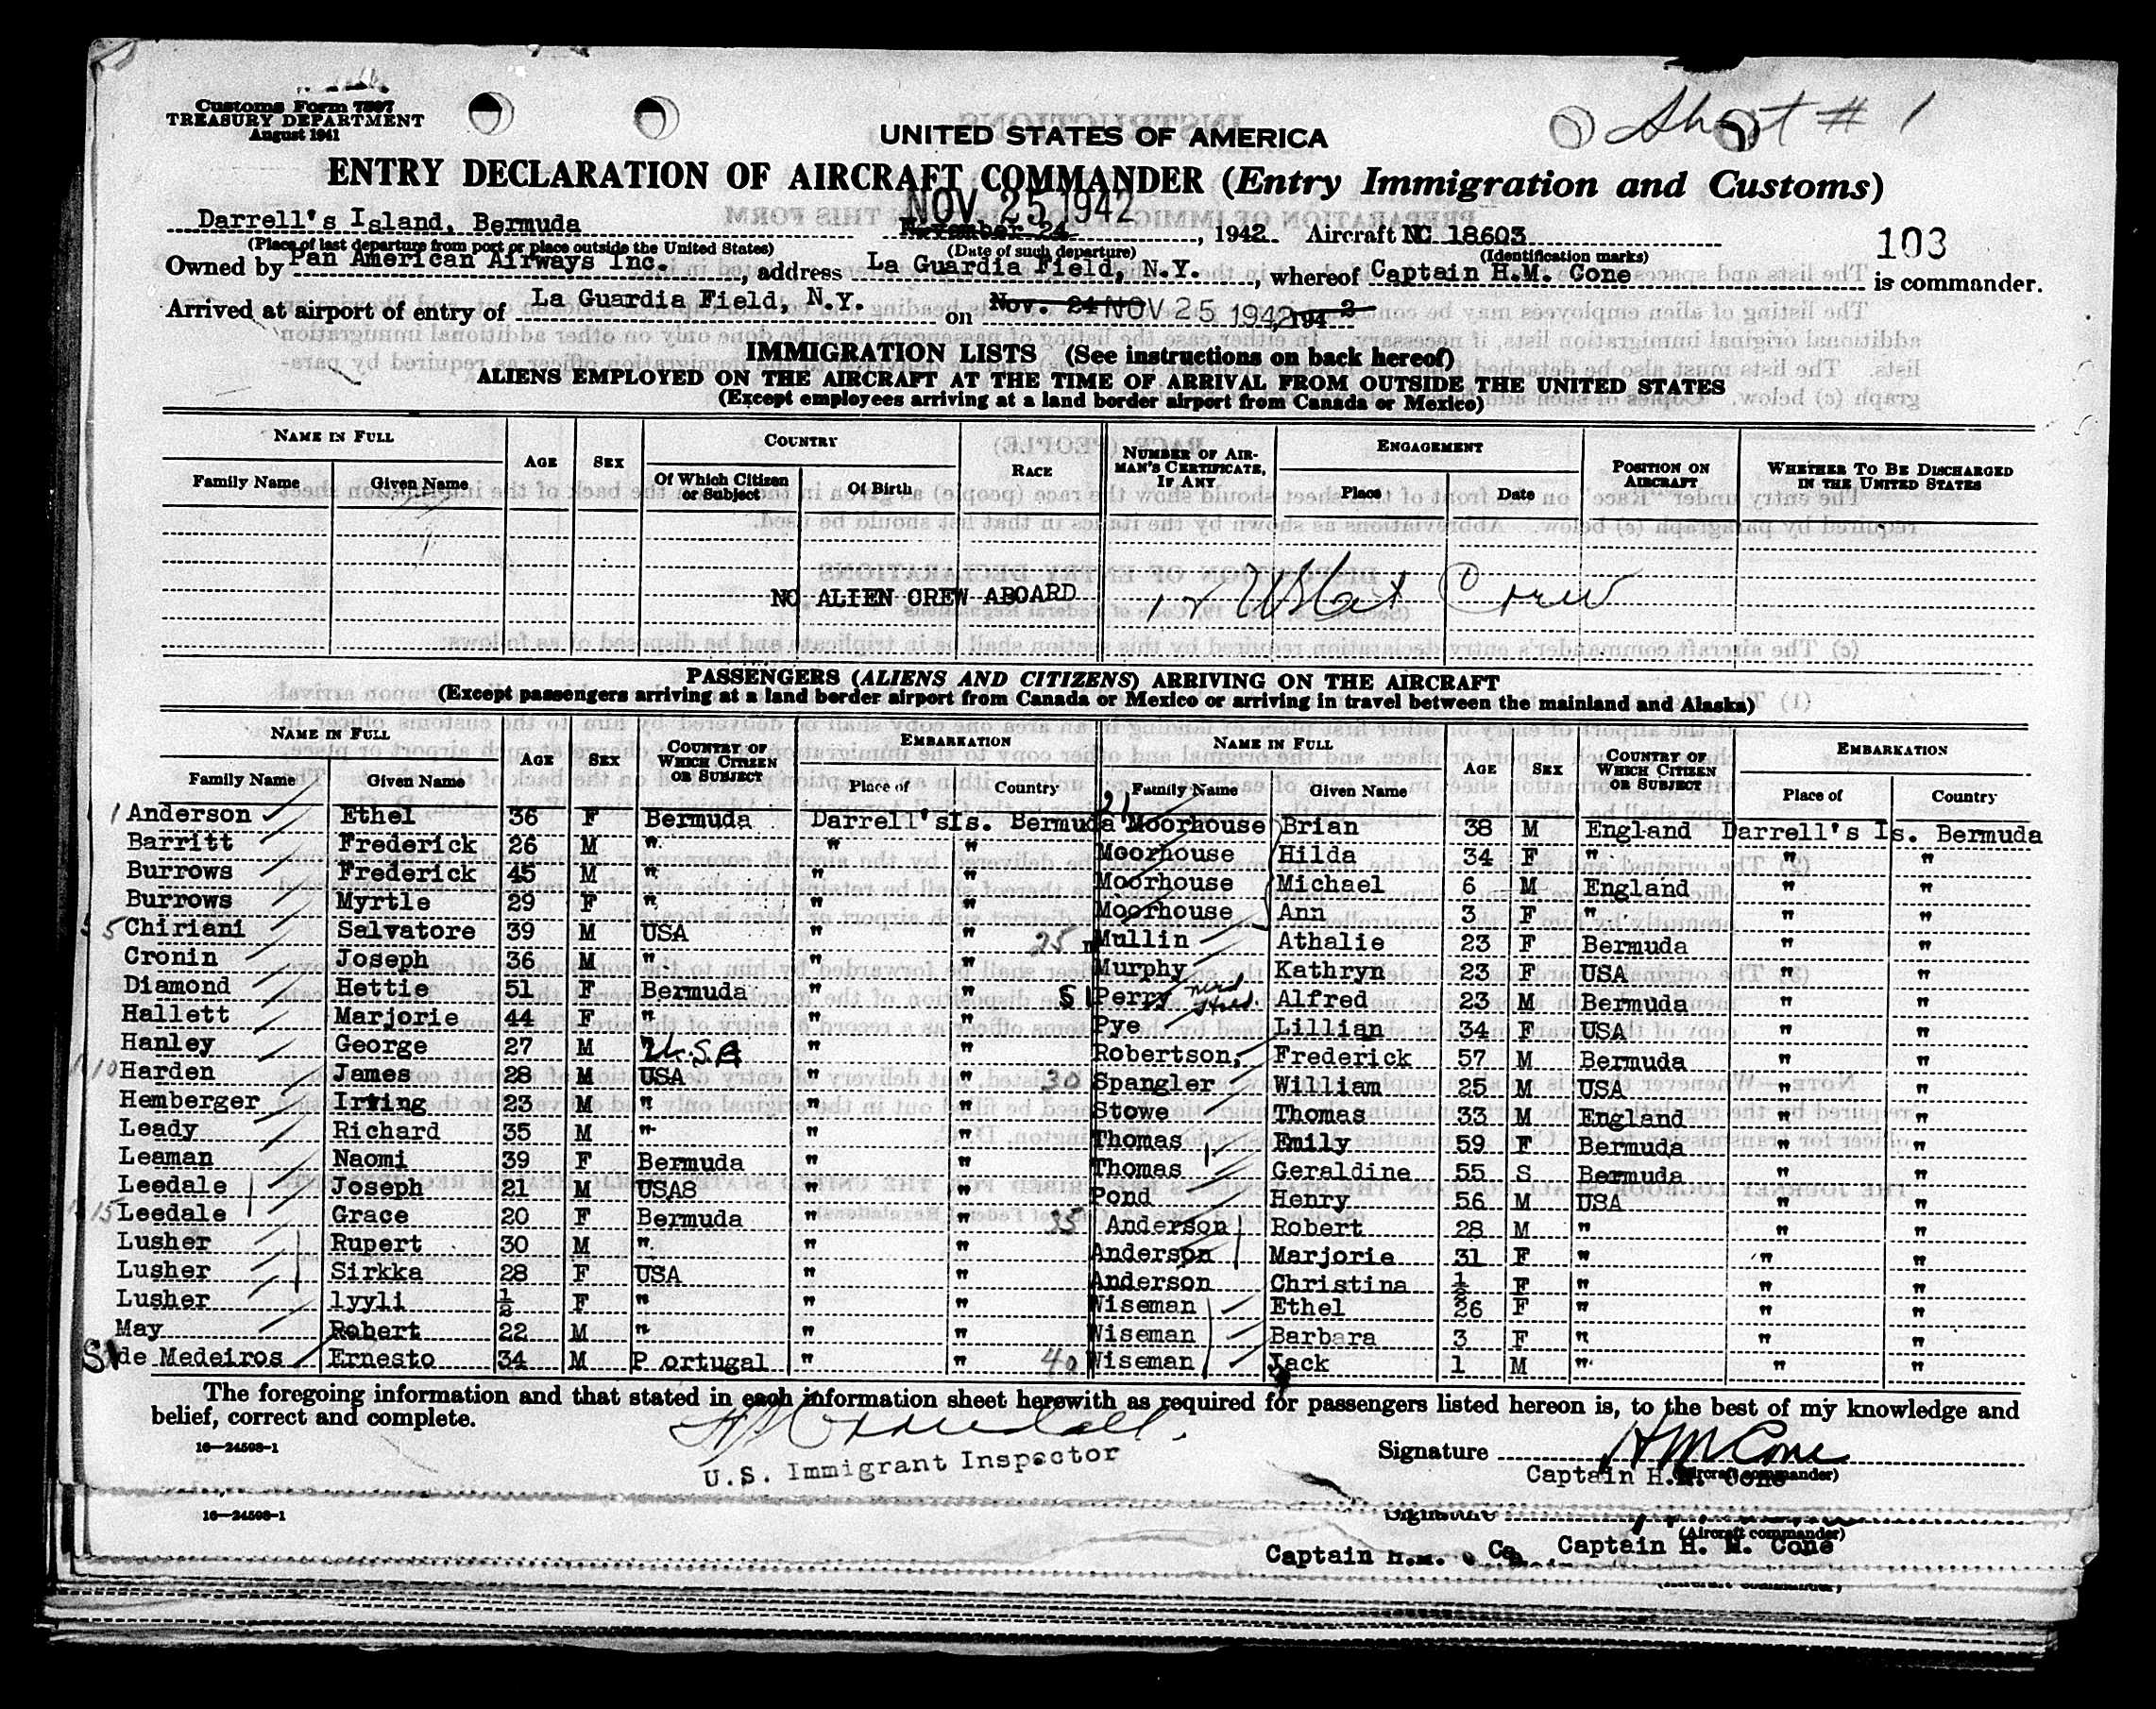 Customs Form 7507
TREASURY DEPARTMENT
August 1941
UNITED STATES OF AMERICA
# 1
ENTRY DECLARATION OF AIRCRAFT COMMANDER (Entry Immigration and Customs)
NOV 25 1942
Darrell's Island, Bermuda November 24, 1942 Aircraft NC 18603 103
(Place of last departure from port or place outside the United States) (Date of such departure) (Identification marks)
Owned by Pan American Airways Inc., address La Guardia Field, N.Y., whereof Captain H.M. Cone is commander.
Arrived at airport of entry of La Guardia Field, N.Y. on Nov. 24 NOV 25 1942, 1942
IMMIGRATION LISTS (See instructions on back hereof)
ALIENS EMPLOYED ON THE AIRCRAFT AT THE TIME OF ARRIVAL FROM OUTSIDE THE UNITED STATES
(Except employees arriving at a land border airport from Canada or Mexico)
NAME IN FULL AGE SEX COUNTRY RACE NUMBER OF AIRMAN'S CERTIFICATE, IF ANY ENGAGEMENT POSITION ON AIRCRAFT WHETHER TO BE DISCHARGED IN THE UNITED STATES
Family Name Given Name Of Which Citizen or Subject Of Birth Place Date
NO ALIEN CREW ABOARD Crew
PASSENGERS (ALIENS AND CITIZENS) ARRIVING ON THE AIRCRAFT
(Except passengers arriving at a land border airport from Canada or Mexico or arriving in travel between the mainland and Alaska)
NAME IN FULL AGE SEX COUNTRY OF WHICH CITIZEN OR SUBJECT EMBARKATION NAME IN FULL AGE SEX COUNTRY OF WHICH CITIZEN OR SUBJECT EMBARKATION
Family Name Given Name Place of Country Family Name Given Name Place of Country
1 Anderson Ethel 36 F Bermuda Darrell's Is. Bermuda 21 Moorhouse Brian 38 M England Darrell's Is. Bermuda
Barritt Frederick 26 M " " " Moorhouse Hilda 34 F " " "
Burrows Frederick 45 M " " " Moorhouse Michael 6 M England " "
Burrows Myrtle 29 F " " " Moorhouse Ann 3 F " " "
5 Chiriani Salvatore 39 M USA " " 25 Mullin Athalie 23 F Bermuda " "
Cronin Joseph 36 M " " " Murphy Kathryn 23 F USA " "
Diamond Hettie 51 F Bermuda " " SI Perry Alfred 23 M Bermuda " "
Hallett Marjorie 44 F " " " Pye Lillian 34 F USA " "
Hanley George 27 M U.S.A " " Robertson, Frederick 57 M Bermuda " "
10 Harden James 28 M USA " " 30 Spangler William 25 M USA " "
Hemberger Irving 23 M " " " Stowe Thomas 33 M England " "
Leady Richard 35 M " " " Thomas Emily 59 F Bermuda " "
Leaman Naomi 39 F Bermuda " " Thomas Geraldine 55 S Bermuda " "
Leedale Joseph 21 M USA8 " " Pond Henry 56 M USA " "
15 Leedale Grace 20 F Bermuda " " 35 Anderson Robert 28 M " " "
Lusher Rupert 30 M " " " Anderson Marjorie 31 F " " "
Lusher Sirkka 28 F USA " " Anderson Christina ½ F " " "
Lusher lyyli ½ F " " " Wiseman Ethel 26 F " " "
May Robert 22 M " " " Wiseman Barbara 3 F " " "
SI de Medeiros Ernesto 34 M P ortugal " " 40 Wiseman Jack 1 M " " "
The foregoing information and that stated in each information sheet herewith as required for passengers listed hereon is, to the best of my knowledge and
belief, correct and complete.
16—24598-1
U.S. Immigrant Inspector
Signature H M Cone
Captain H.M. Cone
(Aircraft commander)
16—24598-1
Signature
(Aircraft commander)
Captain H.M. Co Captain H. M. Cone